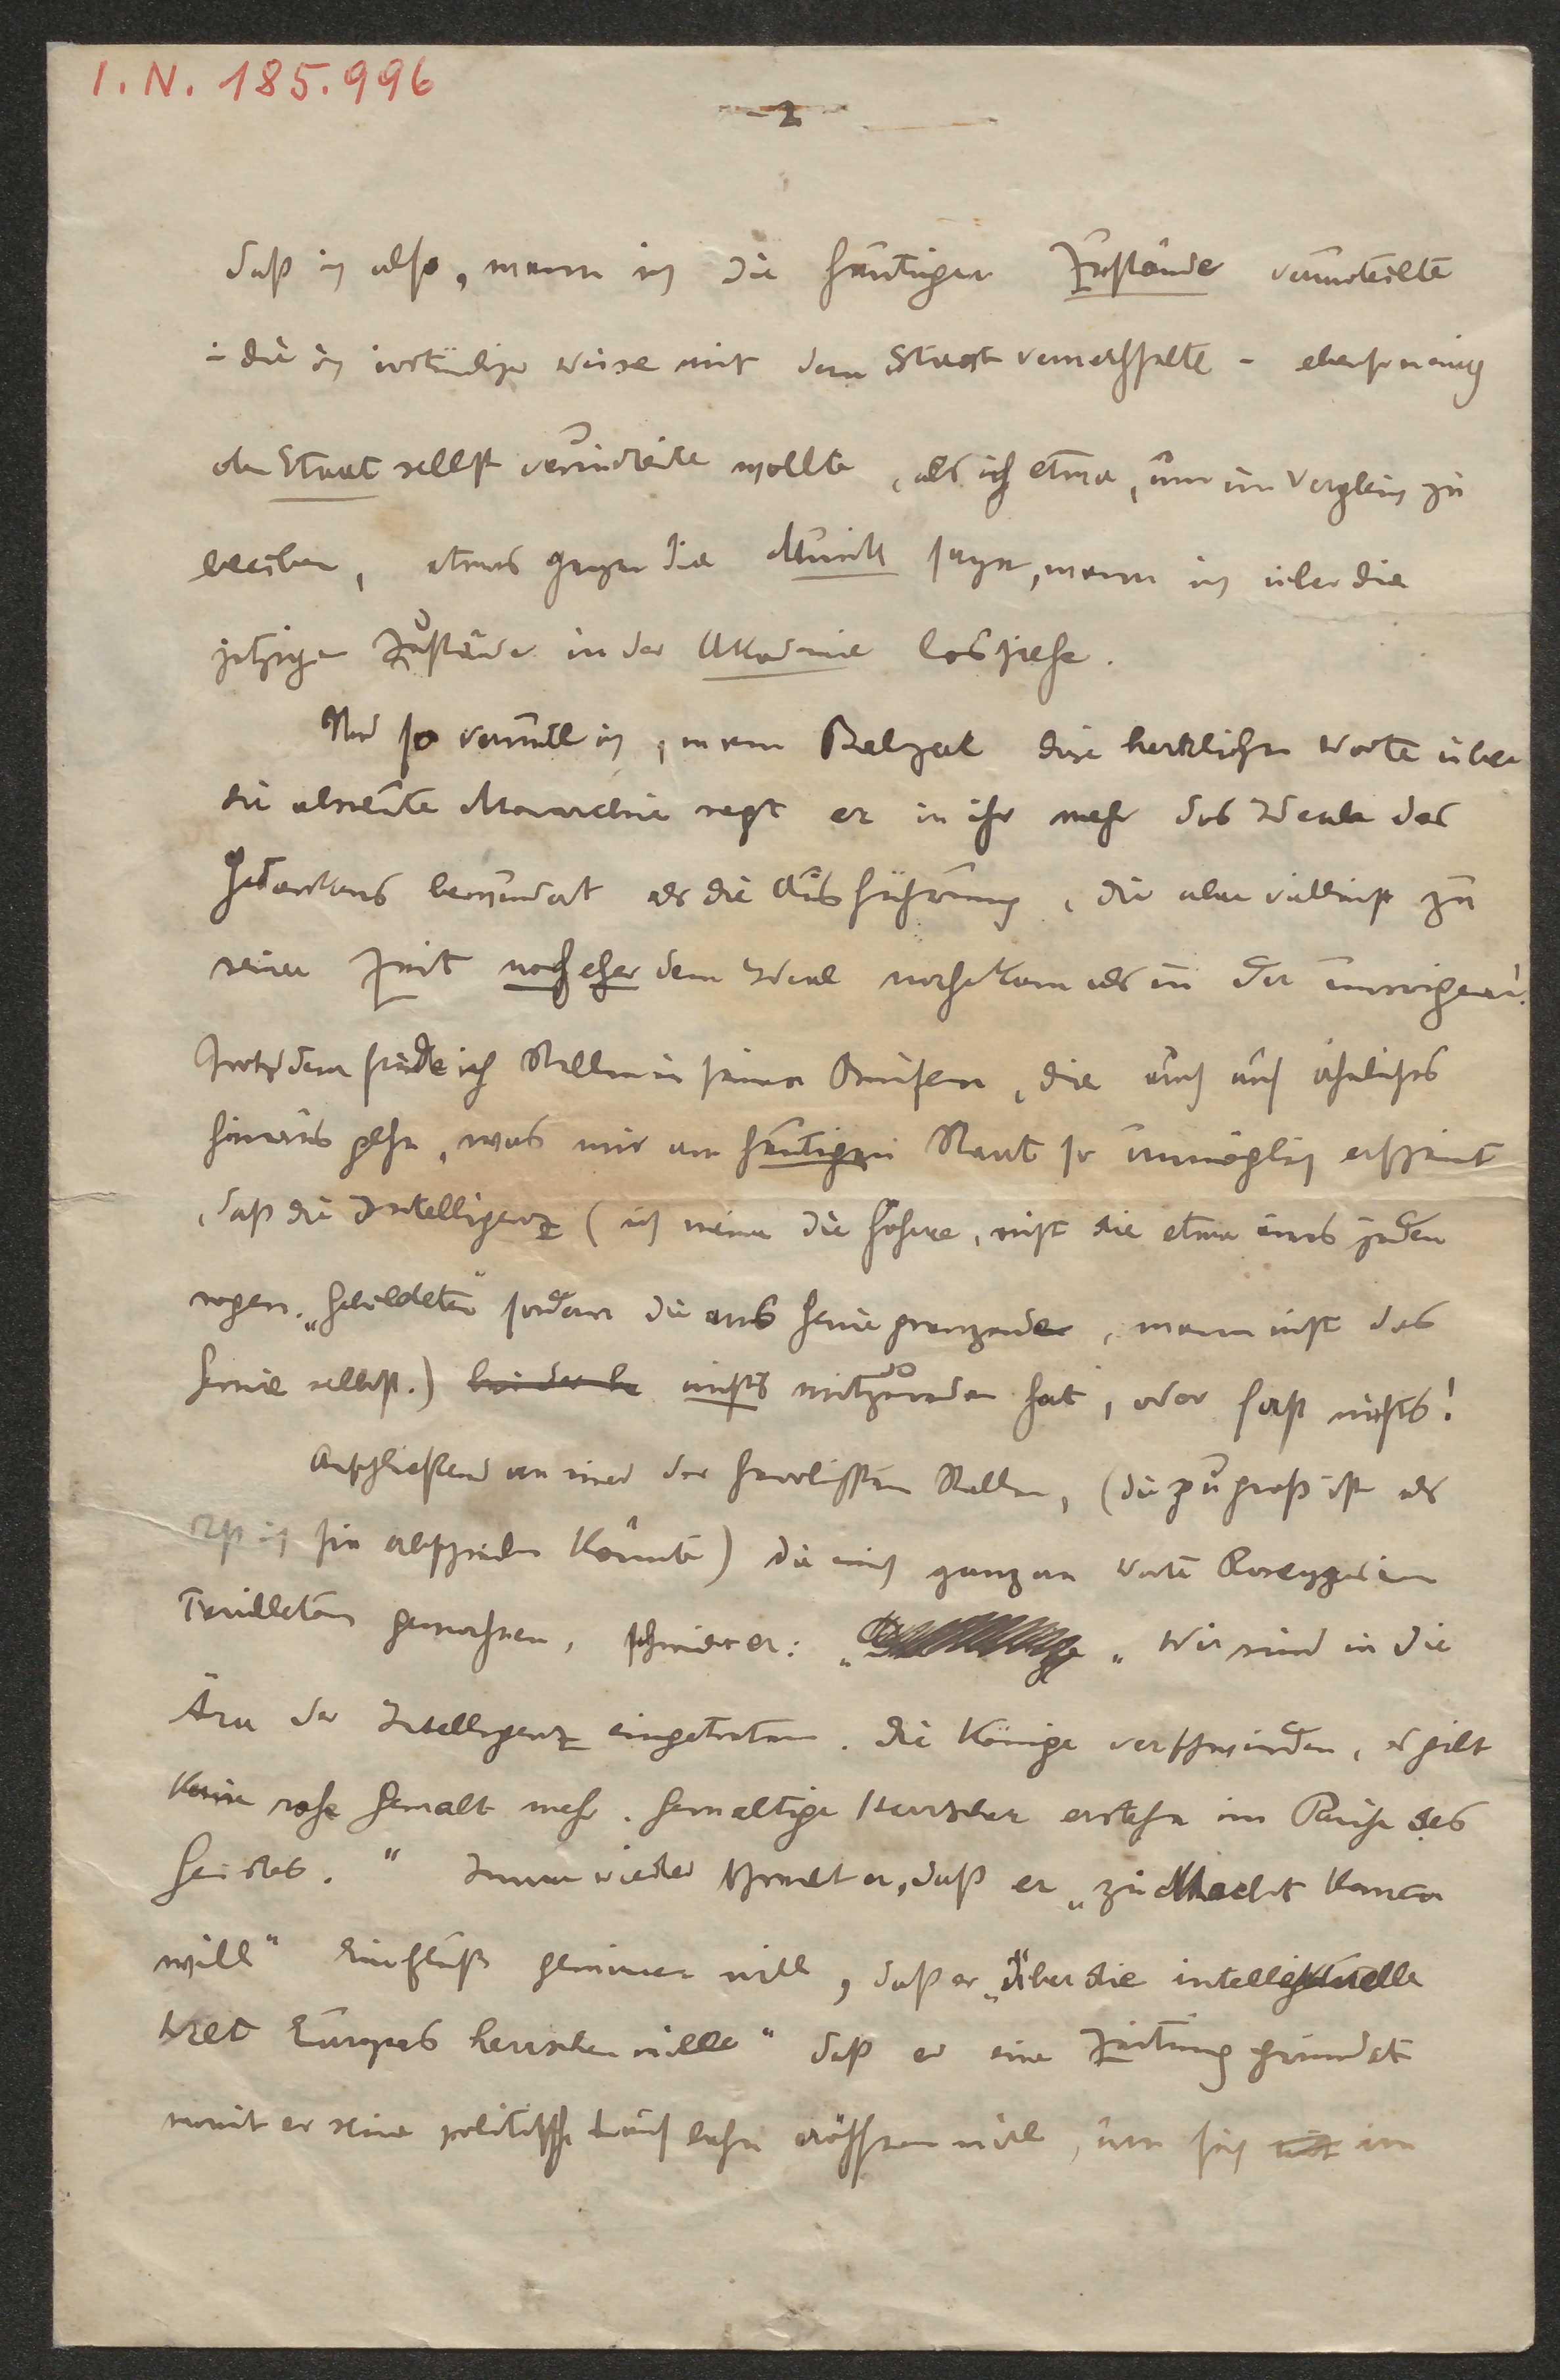 I. N. 185.996
- 2 -
daß ich also, wenn ich die heutigen Zustände verurteilte
- die ich irrtümlicher weise mit dem Staat verwechselte - ebensowenig
den Staat selbst verurteilen wollte, als ich etwa, um im Vergleich zu
bleiben, etwas gegen die Musik sage, wenn ich über die
jetzigen Zustände in der Akademie losziehe.
Und so vermutl ich, wenn Balzac diese herrlichen Worte über
die absolute Monarchie sagt er in ihr mehr das Ideale des
Gedankens bewundert als die Ausführung, die aber vielleicht zu
seiner Zeit noch eher dem Ideal nahe kam als in der unsrigen!
Trotzdem finde ich Stellen in seinen Briefen, die auch auf ähnliches
hinaus gehn, was mir am heutigen Staat so unmöglich erscheint
, daß die Intelligenz (ich meine die höhere, nicht die etwa eines jeden
sogen. „Gebildeten" sondern die ans Genie grenzende, wenn nicht das
Genie selbst.) nichts mitzureden hat, oder fast nichts!
Anschließend an einer der herrlichsten Stellen, (die zu groß ist als
daß ich sie abschreiben könnte) die mich ganz an Worte
Feuilleton gemahnen, schreibt er: „Wir sind in die
Ära der Intelligenz eingetreten. Die Könige verschwinden, es gibt
keine rohe Gewalt mehr. Gewaltige Herrscher erstehn im Reiche des
Geistes." Immer wieder schreibt er, daß er „zu Macht komen
will" Einfluß gewinnen will, daß er „über die intellektuelle
Welt Europas herrschen wolle" daß er eine Zeitung gründet
womit er seine politische Laufbahn eröffnen will, um sich im